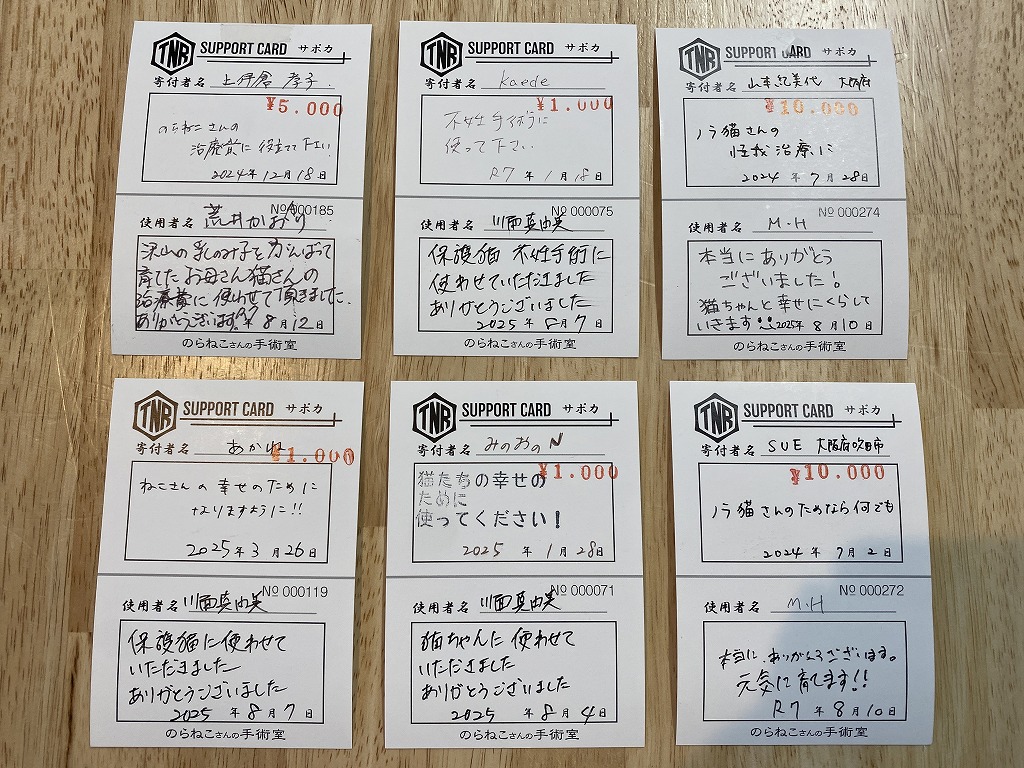 TNR SUPPORT CARD サポカ
寄付者名 上伊倉 孝子
¥5.000
のらねこさんの
治療費に役立てて下さい
2024年12月18日
No 000185
使用者名 荒井かおり
沢山の乳のみ子をがんばって
育てたお母さん猫さんの
治療費に使わせて頂きました。
ありがとうございます。R7年8月12日
のらねこさんの手術室
TNR SUPPORT CARD サポカ
寄付者名 Kaede
¥1.000
不妊手術に
使って下さい
R7年1月18日
No 000075
使用者名 川面真由美
保護猫 不妊手術に
使わせていただきました
ありがとうございました
2025年8月7日
のらねこさんの手術室
TNR SUPPORT CARD サポカ
寄付者名 山本紀美代 大阪府
¥10.000
ノラ猫さんの
怪我治療に
2024年7月28日
No 000274
使用者名 M.H
本当にありがとう
ございました!
猫ちゃんと幸せにくらして
いきます 2025年8月10日
のらねこさんの手術室
TNR SUPPORT CARD サポカ
寄付者名 あかね
¥1.000
ねこさんの幸せのために
なりますように!!
2025年3月26日
No 000119
使用者名 川面真由美
保護猫に使わせて
いただきました
ありがとうございました
2025年8月7日
のらねこさんの手術室
TNR SUPPORT CARD サポカ
寄付者名 みのおのN
¥1.000
猫たちの幸せの
ために
使ってください!
2025年1月28日
No 000071
使用者名 川面真由美
猫ちゃんに使わせて
いただきました
ありがとうございました
2025年8月4日
のらねこさんの手術室
TNR SUPPORT CARD サポカ
寄付者名 SUE 大阪府吹田市
¥10.000
ノラ猫さんのためなら何でも
2024年7月2日
No 000272
使用者名 M.H
本当に、ありがとうございます。
元気に育てます!!
R7年8月10日
のらねこさんの手術室